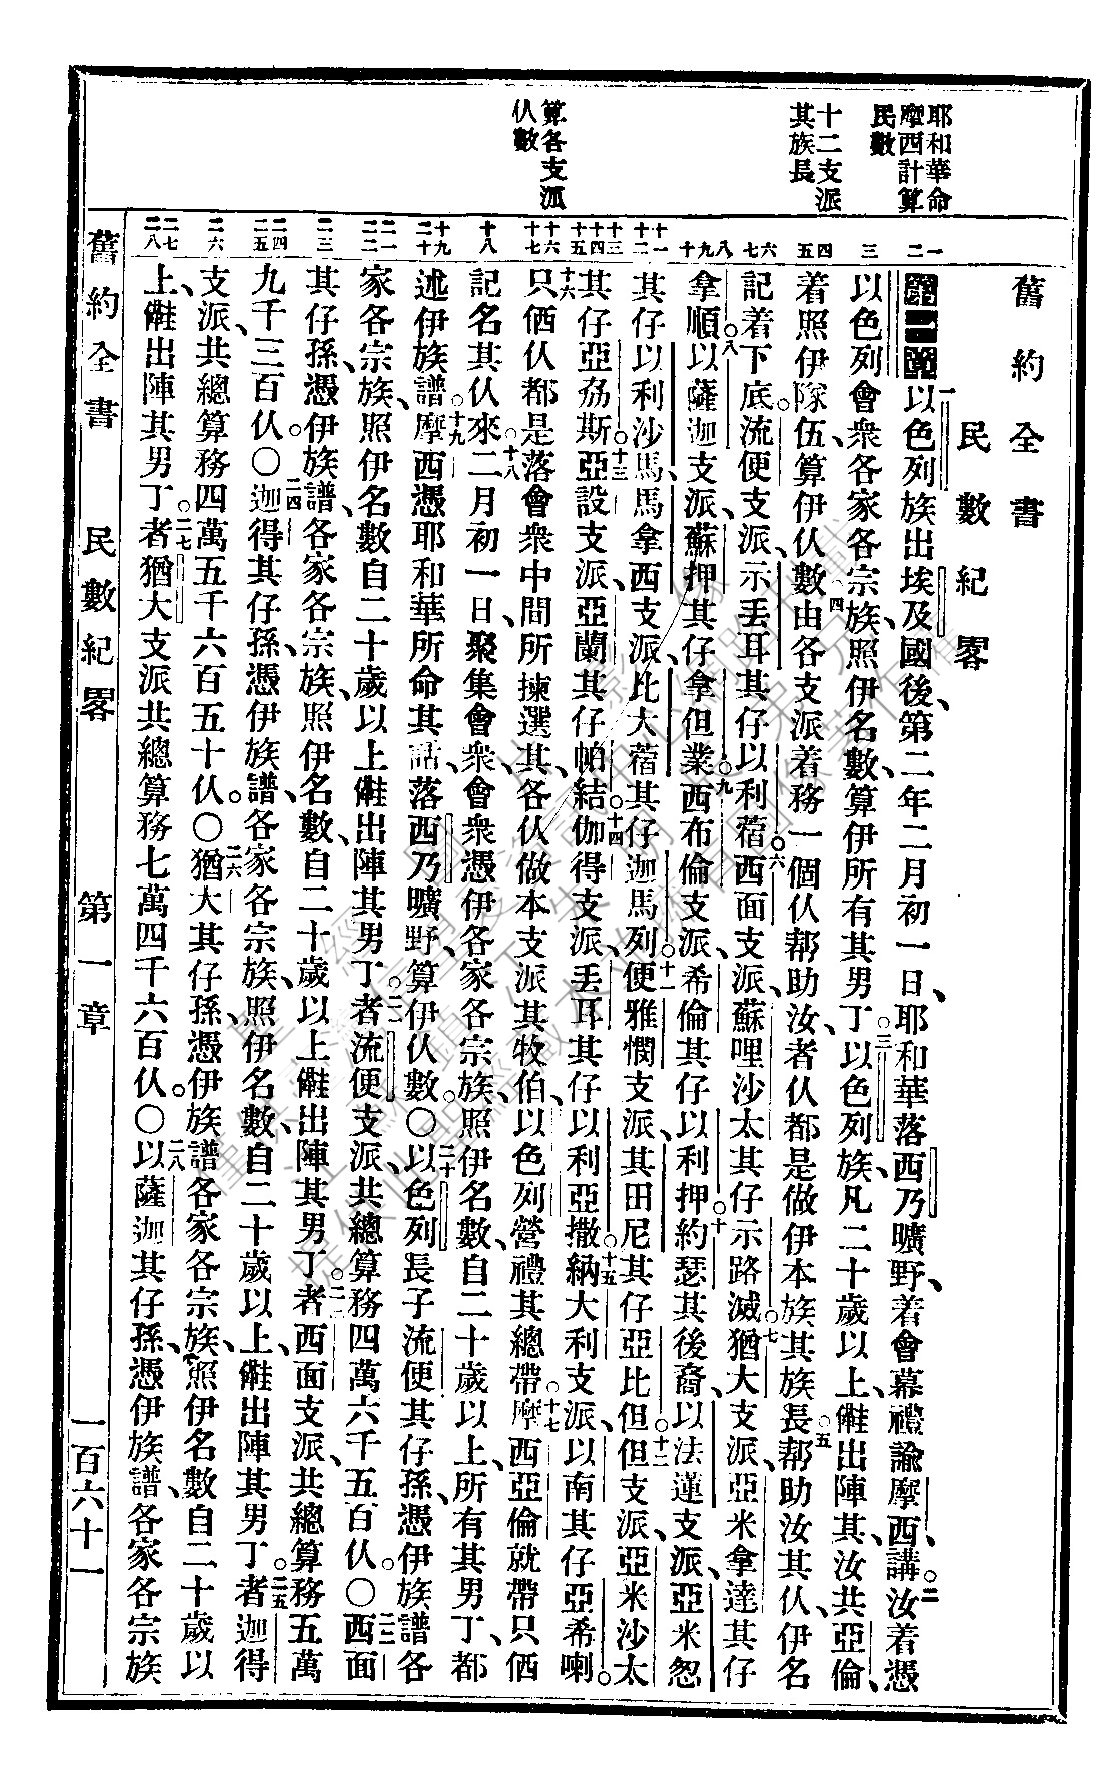 舊約全書
民數紀畧
耶和華命
摩西計算
民數
十二支派
其族長
算各支派
仈數
第一章 一以色列族出埃及國後、第二年二月初一日、耶和華落西乃曠野、着會幕禮諭摩西講、二汝着憑
以色列會衆各家各宗族、照伊名數、算伊所有其男丁。三以色列族、凡二十歲以上、㑚出陣其、汝共亞倫、
着照伊隊伍算伊仈數。四由各支派着務一個仈帮助汝、者仈都是做伊本族其族長。五帮助汝其仈、伊名
記着下底。流便支派、示丟耳其仔以利蓿。六西面支派、蘇哩沙太其仔示路滅。七猶大支派、亞米拿達其仔
拿順。八以薩迦支派、蘇押其仔拿但業。九西布倫支派、希倫其仔以利押。十約瑟其後裔、以法蓮支派、亞米忽
其仔以利沙馬、馬拿西支派、比大蓿其仔迦馬列。十一便雅憫支派、其田尼其仔亞比但。十二但支派、亞米沙太
其仔亞希以斯。十三亞設支派、亞蘭其仔帕結。十四伽得支派、丟耳其仔以利亞撒。十五納大利支派、以南其仔亞希喇。
十六只伵仈都是落會衆中間所揀選其、各仈做本支派其牧伯、以色列營禮其總帶。十七摩西亞倫就帶只伵
記名其仈來。十八二月初一日、聚集會衆、會衆憑伊各家各宗族、照伊名數、自二十歲以上、所有其男丁、都
述伊族譜。十九摩西憑耶和華所命其話、落西乃曠野、算伊仈數。〇二十以色列長子流便其仔孫、憑伊族譜各
家各宗族、照伊名數、自二十歲以上㑚出陣其男丁。二一者流便支派、共總算務四萬六千五百仈。〇二二西面
其仔孫、憑伊族譜、各家各宗族、照伊名數、自二十歲以上㑚出陣其男丁。二三者西面支派、共總算務五萬
九千三百仈。〇二四迦得其仔孫、憑伊族譜、各家各宗族、照伊名數、自二十歲以上、㑚出陣其男丁。二五者迦得
支派、共總算務四萬五千六百五十仈。〇二六猶大其仔孫、憑伊族譜、各家各宗族、照伊名數、自二十歲以
上、㑚出陣其男丁。二七者猶大支派共總算務七萬四千六百仈。〇二八以薩迦其仔孫、憑伊族譜、各家各宗族
舊約全書 民數紀畧 第一章 一百六十一